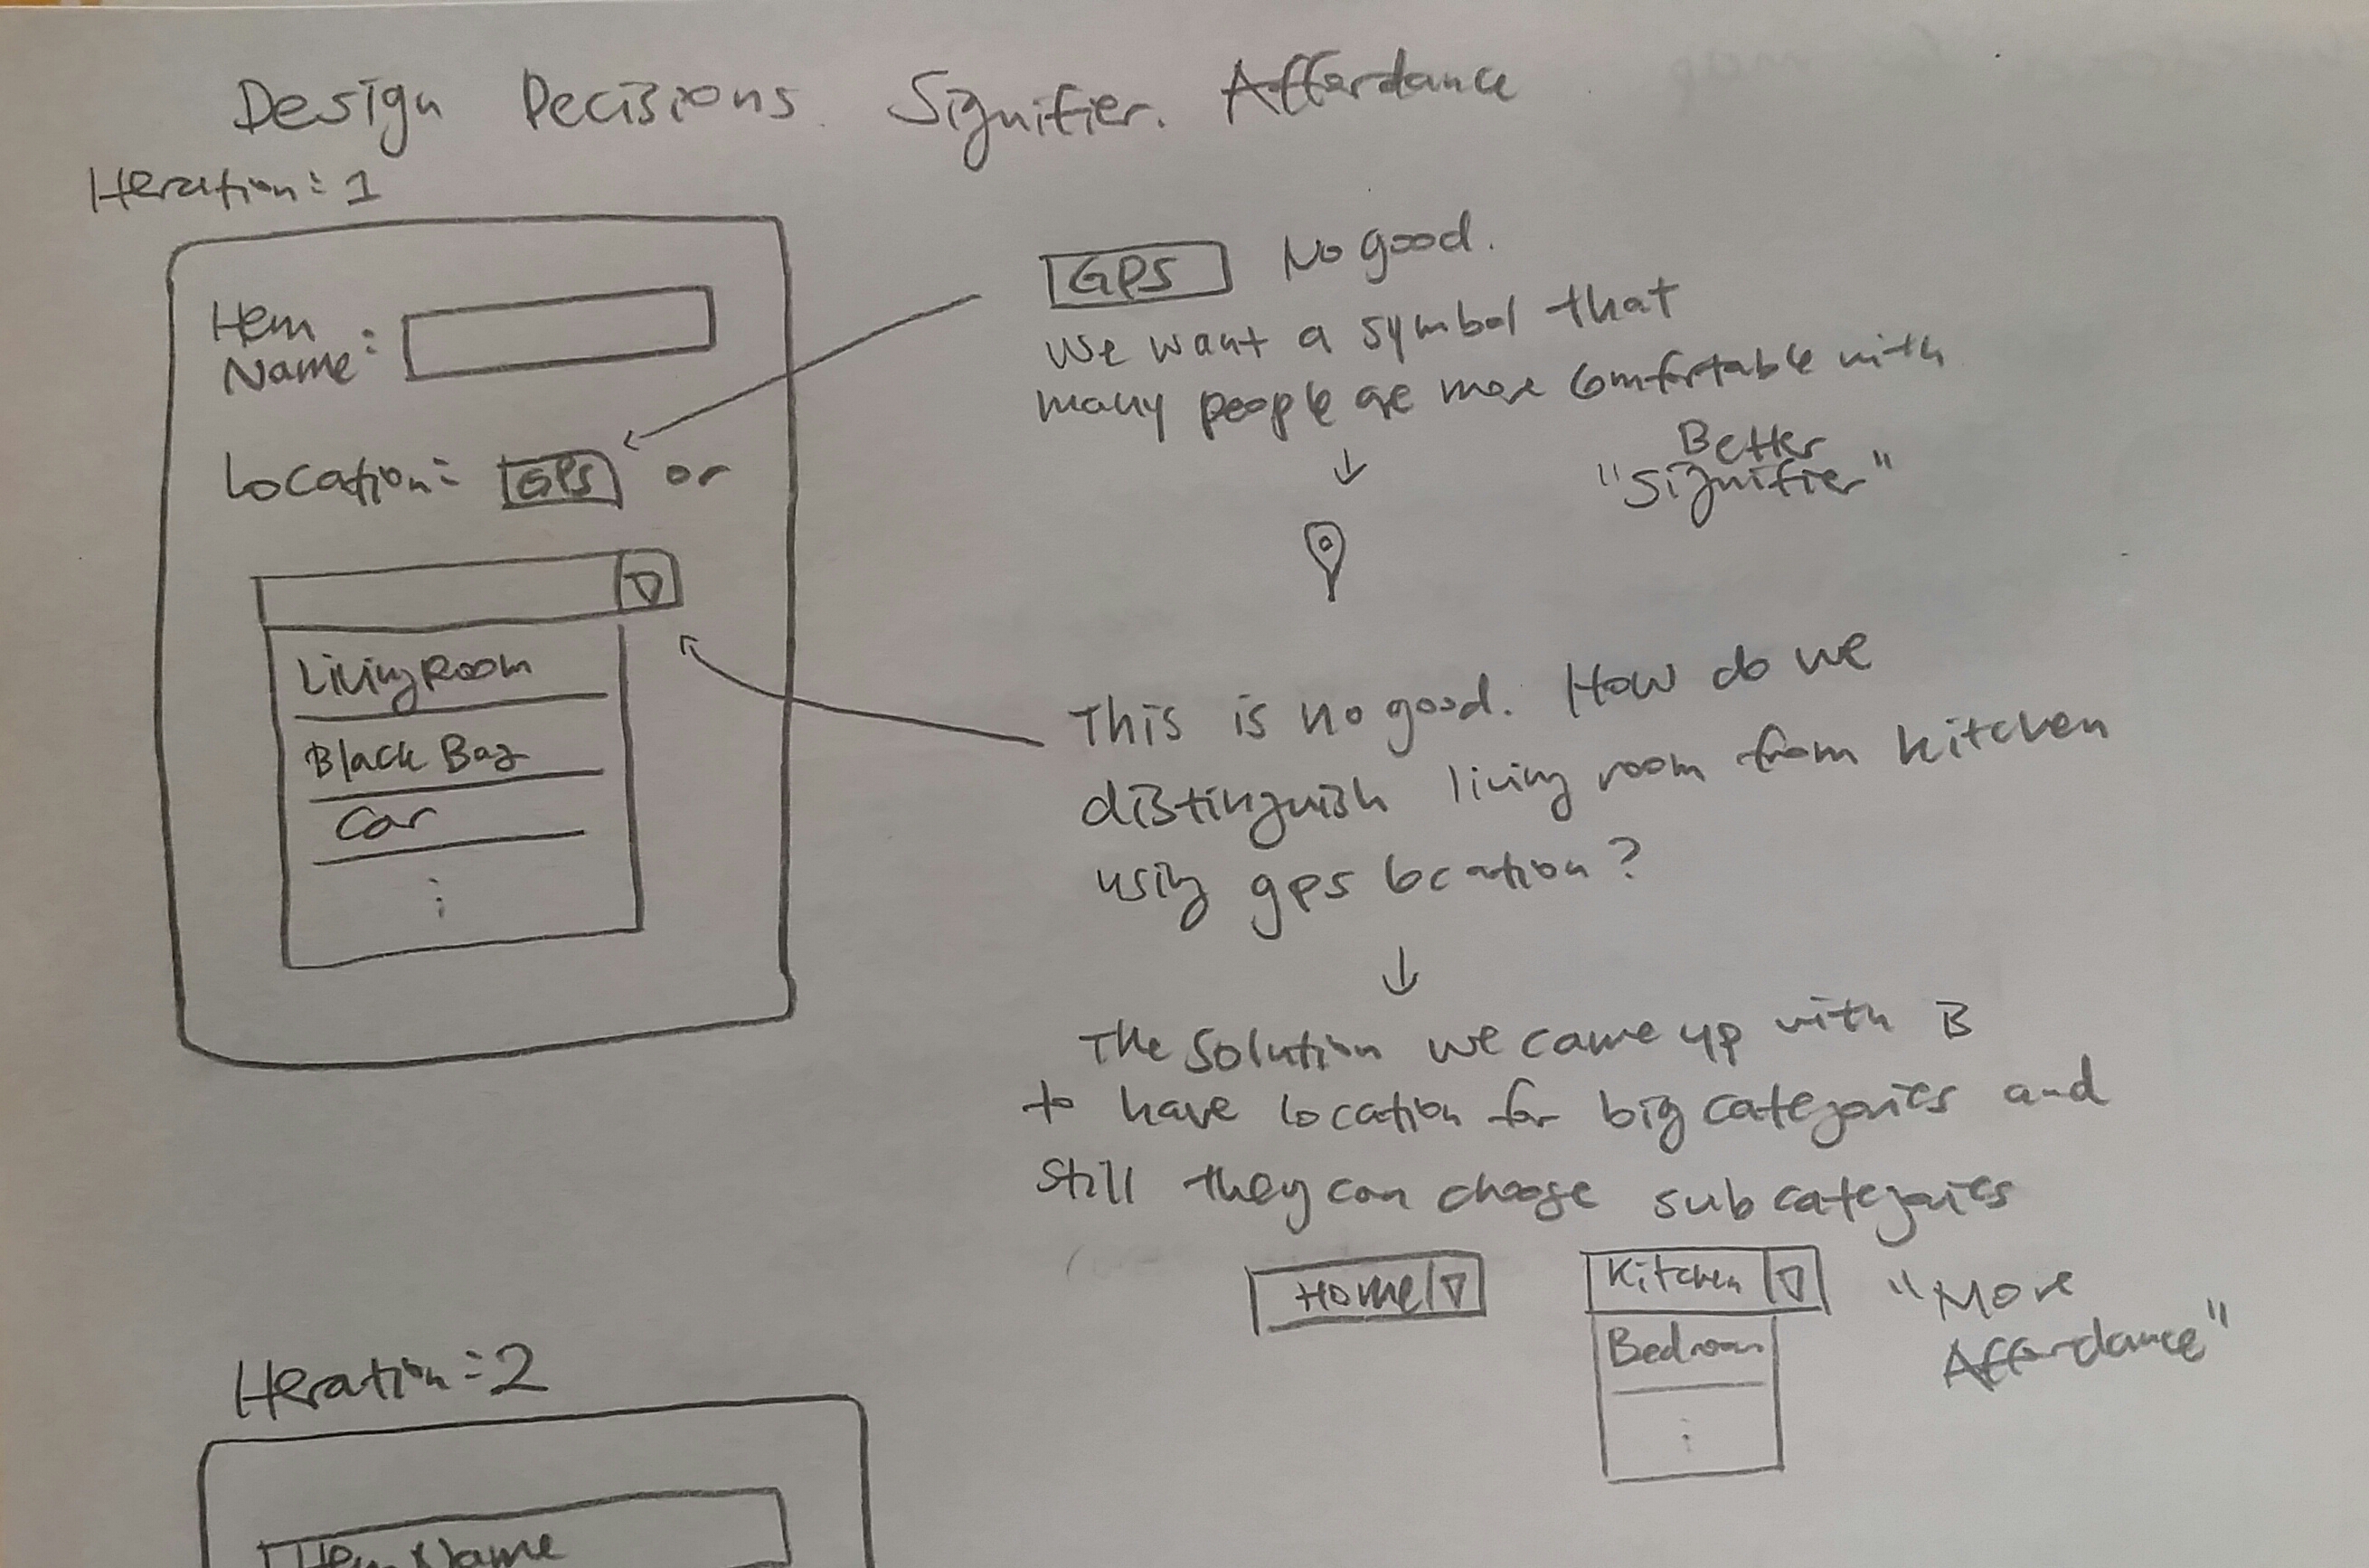 Design Decisions. Signifier. Affordance
Iteration: 1
Item
Name:
Location: GPS or
Living Room
Black Bag
Car
GPS No good.
We want a symbol that
many people are more comfortable with
Better
"Signifier"
This is no good. How do we
distinguish living room from kitchen
using gps location?
The solution we came up with is
to have location for big categories and
still they can choose sub categories
Home
Kitchen
Bedroom
"More
Affordance"
Iteration: 2
Item Name